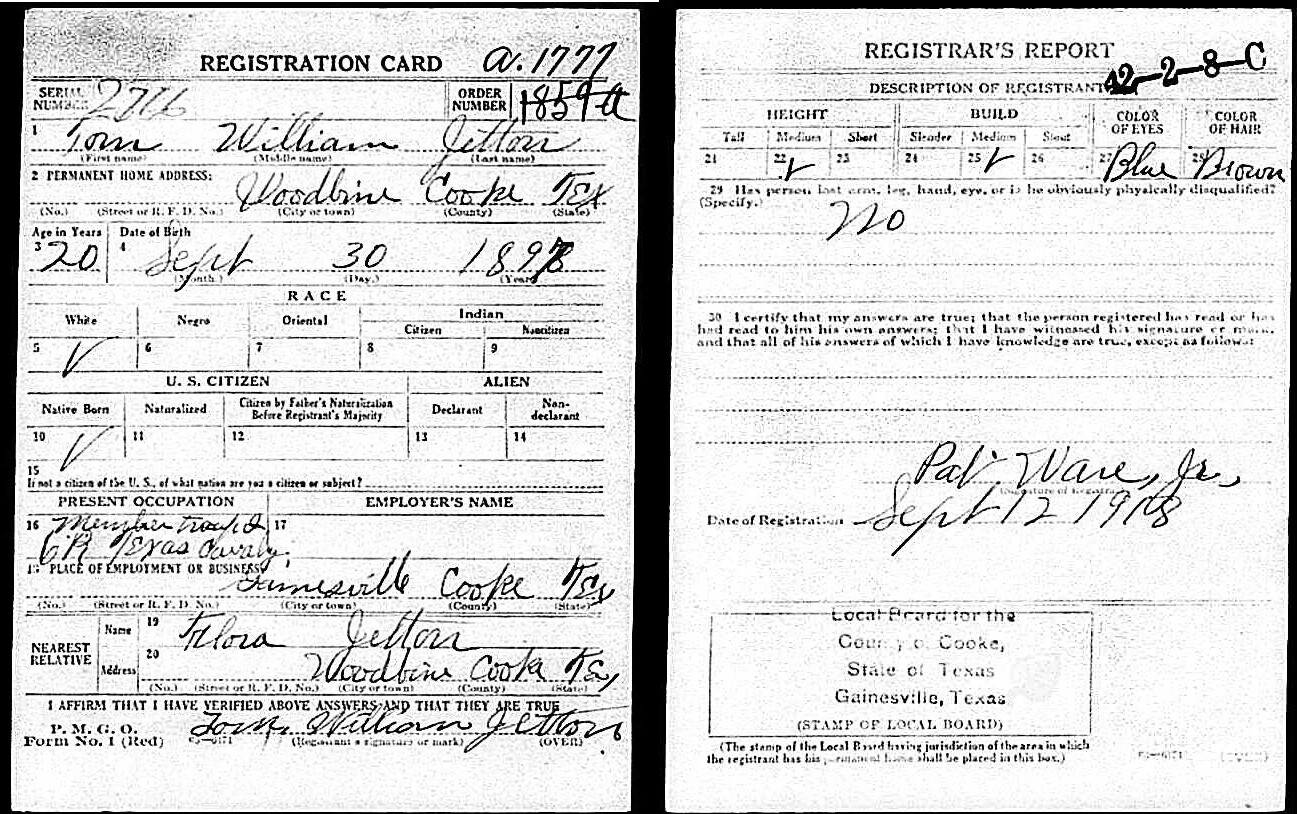 REGISTRATION CARD a. 1777
SERIAL NUMBER
ORDER NUMBER 1859 a
1 Tom William Jetton
(First name) (Middle name) (Last name)
2 PERMANENT HOME ADDRESS:
Woodbine Cooke Tex
(No.) (Street or R. F. D. No.) (City or town) (County) (State)
Age in Years Date of Birth
3 20 4 Sept 30 1898
(Month.) (Day.) (Year)
RACE
White Negro Oriental Indian
Citizen Noncitizen
5 6 7 8 9
U. S. CITIZEN ALIEN
Native Born Naturalized Citizen by Father's Naturalization Before Registrant's Majority Declarant Non-declarant
10 11 12 13 14
15
If not a citizen of the U. S., of what nation are you a citizen or subject?
PRESENT OCCUPATION EMPLOYER'S NAME
16 Member troop 17
Texas Cavalry
18 PLACE OF EMPLOYMENT OR BUSINESS:
Gainesville Cooke Tex
(No.) (Street or R. F. D. No.) (City or town) (County) (State)
NEAREST RELATIVE
Name 19 Flora Jetton
Address 20 Woodbine Cooke Tex
(No.) (Street or R. F. D. No.) (City or town) (County) (State)
I AFFIRM THAT I HAVE VERIFIED ABOVE ANSWERS AND THAT THEY ARE TRUE
P. M. G. O.
Form No. 1 (Red) Tom William Jetton
(Registrant's signature or mark) (OVER)
REGISTRAR'S REPORT
42-2-8-C
DESCRIPTION OF REGISTRANT
HEIGHT BUILD COLOR OF EYES COLOR OF HAIR
Tall Medium Short Slender Medium Stout
21 22 23 24 25 26 27 Blue 28 Brown
29 Has person lost arm, leg, hand, eye, or is he obviously physically disqualified?
(Specify.) No
30 I certify that my answers are true; that the person registered has read or has
had read to him his own answers; that I have witnessed his signature or mark,
and that all of his answers of which I have knowledge are true, except as follows:
Pat Ware, Jr.
(Signature of Registrar)
Date of Registration Sept 12 1918
Local Board for the
County of Cooke,
State of Texas
Gainesville, Texas
(STAMP OF LOCAL BOARD)
(The stamp of the Local Board having jurisdiction of the area in which
the registrant has his permanent home shall be placed in this box.)